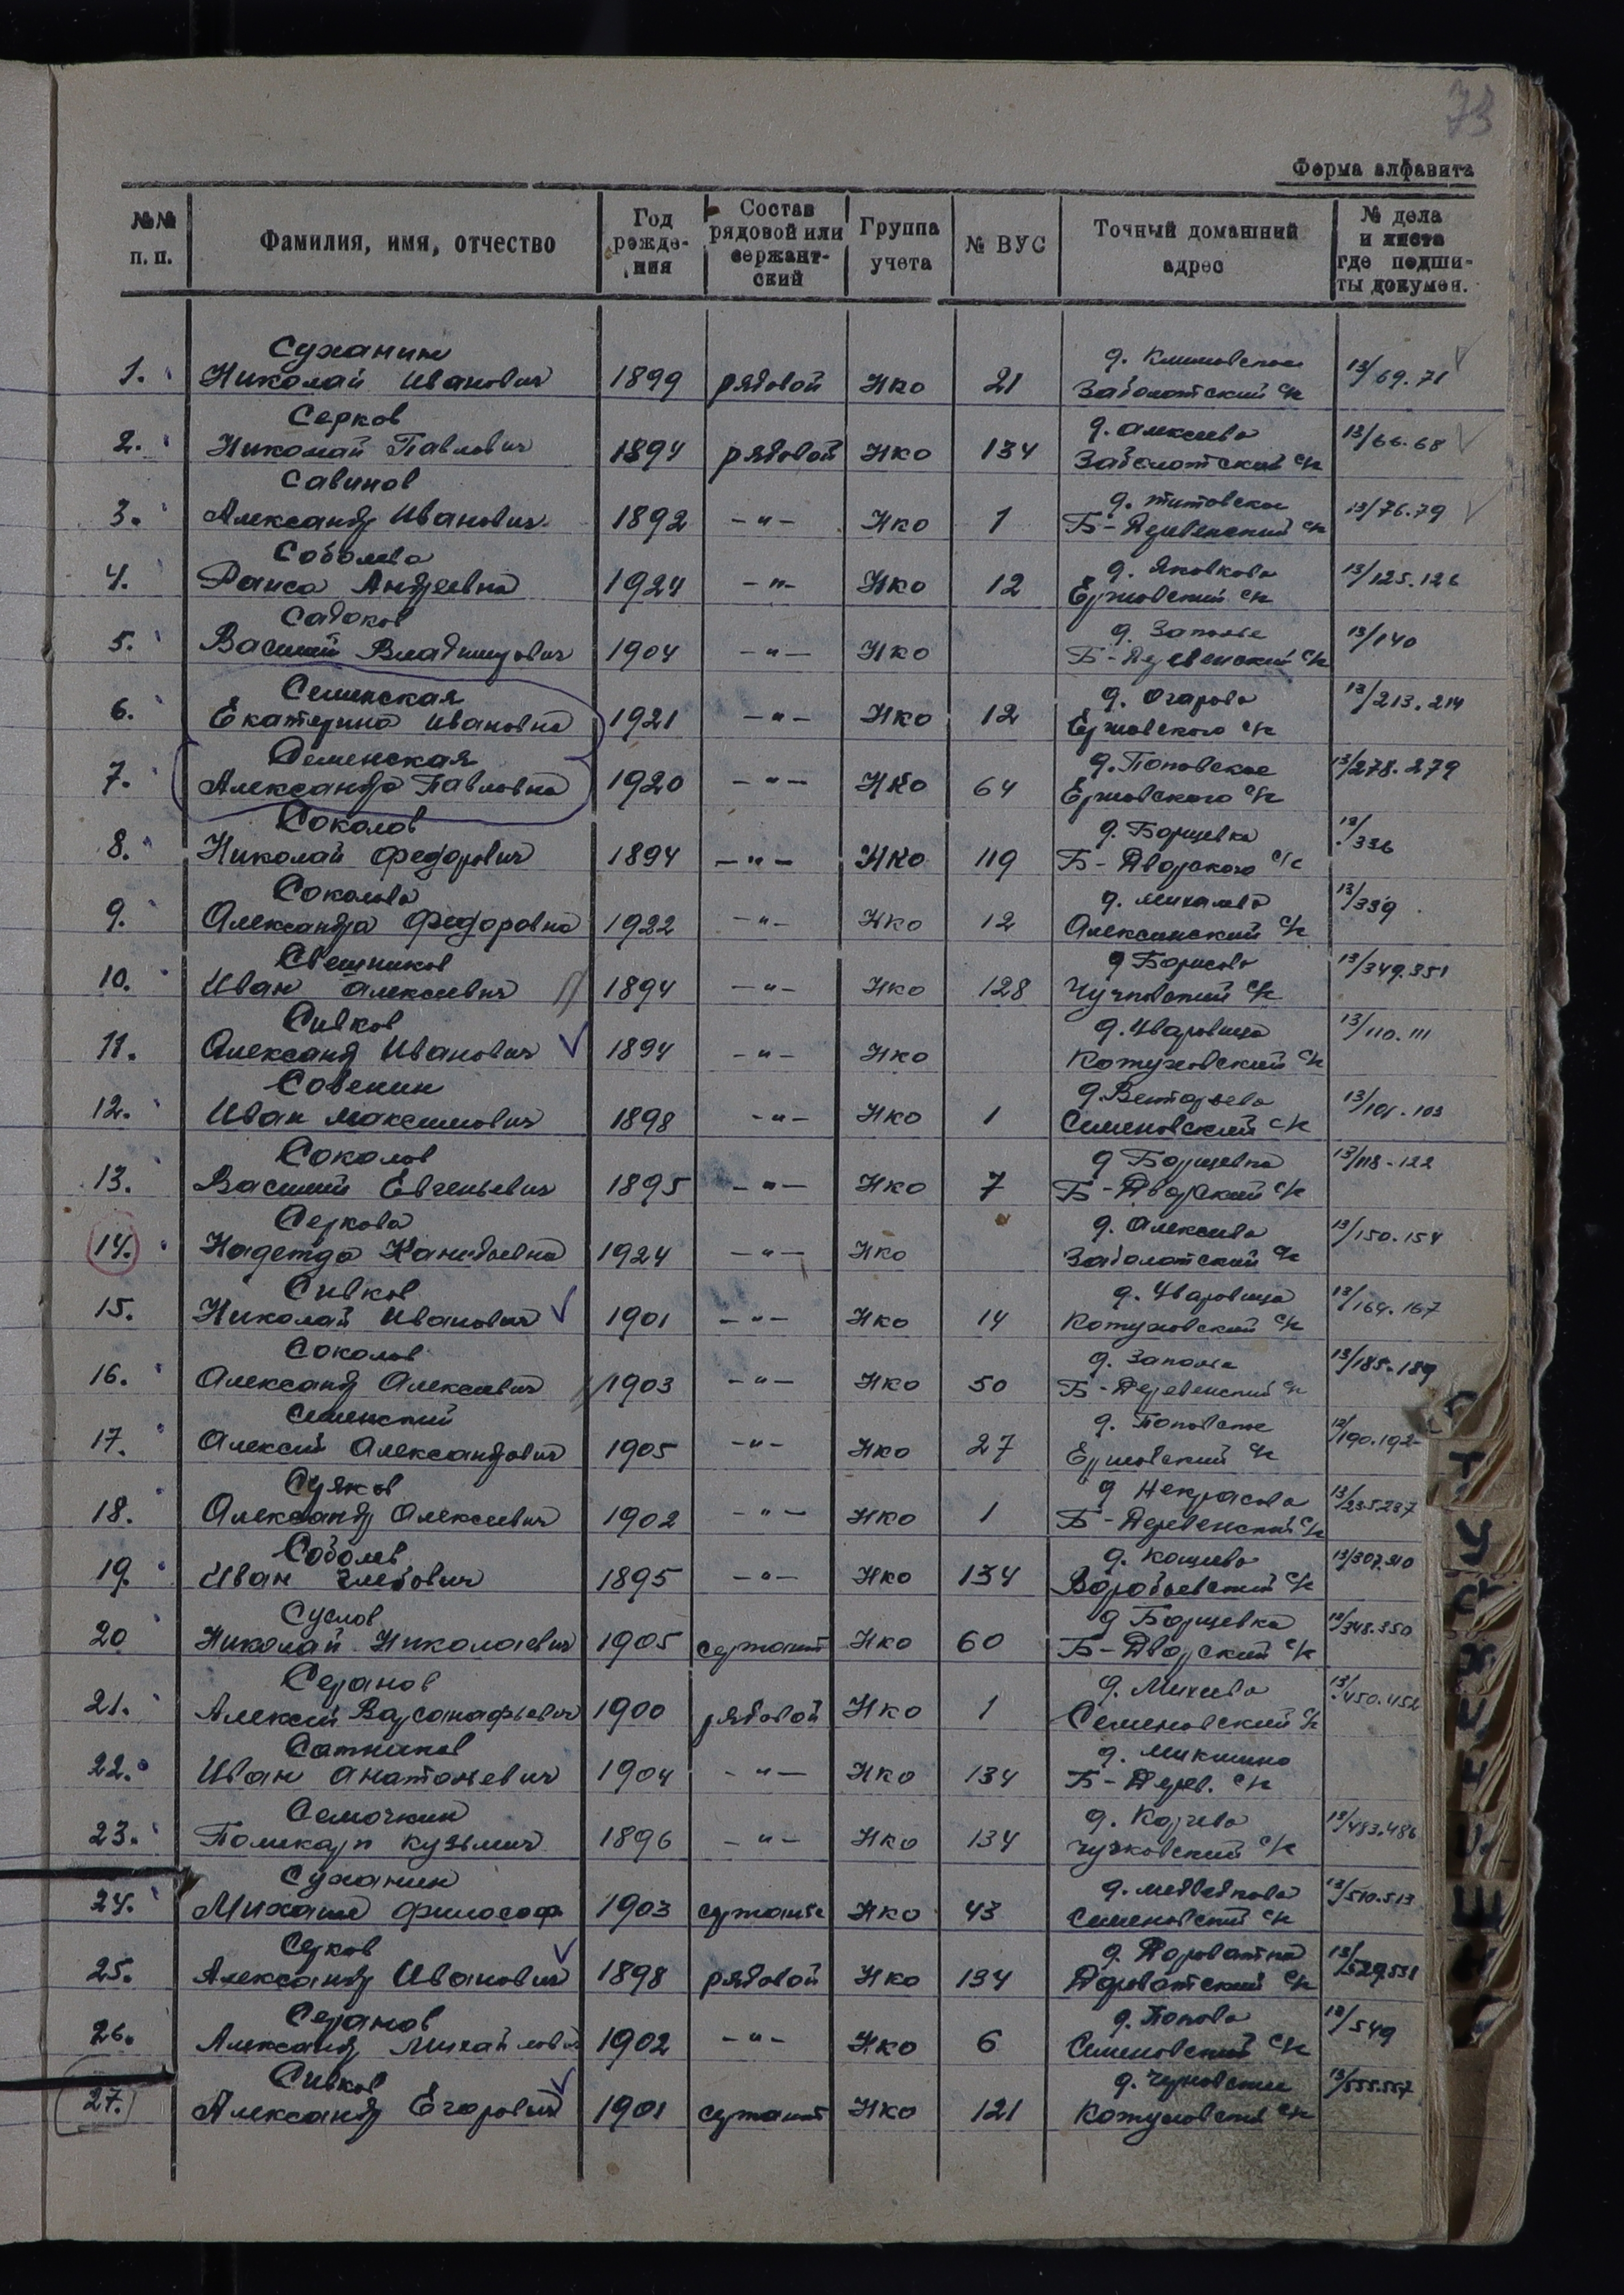 73
Форма алфавита
№№ п. п. Фамилия, имя, отчество Год рожде-ния Состав рядовой или сержант-ский Группа учета № ВУС Точный домашний адрес № дела и листа где подши-ты докумен.
Суханин д. Климовское
1. Николай Иванович 1899 рядовой Нко 21 Заболотский с/с 13/69.71
Серков д. Алексеева
2. Николай Павлович 1894 рядовой Нко 134 Заболотский с/с 13/66.68
Савинов д. Титовское
3. Александр Иванович 1892 -"- Нко 1 Б-Деревенский с/с 13/76.79
Соболева д. Яковкова
4. Раиса Андреевна 1924 -"- Нко 12 Ержовский с/с 13/125.126
Садоков д. Заполье
5. Василий Владимирович 1904 -"- Нко Б-Деревенский с/с 13/140
Семенская д. Огарова
6. Екатерина Ивановна 1921 -"- Нко 12 Ержовского с/с 13/213.214
Семенская д. Поповское
7. Александра Павловна 1920 -"- Нко 64 Ержовского с/с 13/278.279
Соколов д. Борщевка
8. Николай Федорович 1894 -"- Нко 119 Б-Дворского с/с 13/336
Соколова д. Михалева
9. Александра Федоровна 1922 -"- Нко 12 Алексинский с/с 13/339
Свешников д. Борисова
10. Иван Алексеевич 1894 -"- Нко 128 Чучковский с/с 13/349.351
Сивков д. Уваровица
11. Александр Иванович 1894 -"- Нко Кожуховский с/с 13/110.111
Совенин
12. Иван Максимович 1898 -"- Нко 1 Семеновский с/с 13/101-103
Соколов д. Борщевка
13. Василий Евгеньевич 1895 -"- Нко 7 Б-Дворский с/с 13/118-122
Серкова д. Алексеева
14. Надежда Канидьевна 1924 -"- Нко Заболотский с/с 13/150.154
Сивков д. Уваровица
15. Николай Иванович 1901 -"- Нко 14 Кожуховский с/с 13/164.167
Соколов д. Заполье
16. Александр Алексеевич 1903 -"- Нко 50 Б-Деревенский с/с 13/185.189
Семенский д. Поповское
17. Алексей Александрович 1905 -"- Нко 27 Ержовский с/с 13/190.192
д. Некрасова
18. Александр Алексеевич 1902 -"- Нко 1 Б-Деревенский с/с 13/235.237
Соболев д. Кощеева
19. Иван Глебович 1895 -"- Нко 134 Воробьевский с/с 13/307.310
Суслов д. Борщевка
20 Николай Николаевич 1905 сержант Нко 60 Б-Дворский с/с 13/348.350
Серанов д. Михеева
21. Алексей Варсанафьевич 1900 рядовой Нко 1 Семеновский с/с 13/450.452
Сотников д. Микшино
22. Иван Анатольевич 1904 -"- Нко 134 Б-Дерев. с/с
Семочкин
23. Поликарп Кузьмич 1896 -"- Нко 134 Чучковский с/с 13/483.486
Суханин д. Медведкова
24. Михаил Философ 1903 сержант Нко 43 Семеновский с/с 13/510.513
Серков д. Дороватка
25. Александр Иванович 1898 рядовой Нко 134 Дороватский с/с 13/529.531
Серанов д. Попова
26. Александр Михайлович 1902 -"- Нко 6 Семеновский с/с 13/549
Сивков
27. Александр Егорович 1901 сержант Нко 121 Кожуховский с/с 13/555.557